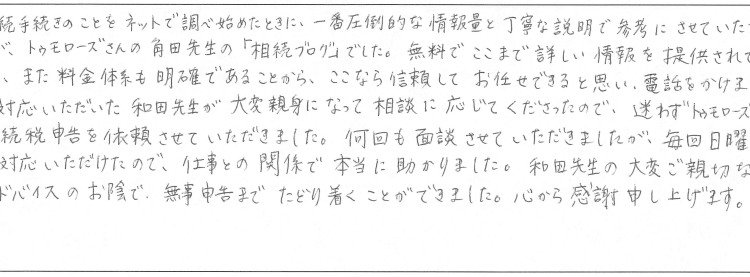 続手続きのことをネットで調べ始めたときに、一番圧倒的な情報量と丁寧な説明で参考にさせていた
、トゥモローズさんの角田先生の「相続ブログ」でした。無料でここまで詳しい情報を提供されて
、また料金体系も明確であることから、ここなら信頼してお任せできると思い、電話をかけま
対応いただいた和田先生が大変親身になって相談に応じてくださったので、迷わずトゥモローズ
続税申告を依頼させていただきました。何回も面談させていただきましたが、毎回日曜
対応いただけたので、仕事との関係で本当に助かりました。和田先生の大変ご親切な
ドバイスのお陰で、無事申告までたどり着くことができました。心から感謝申し上げます。